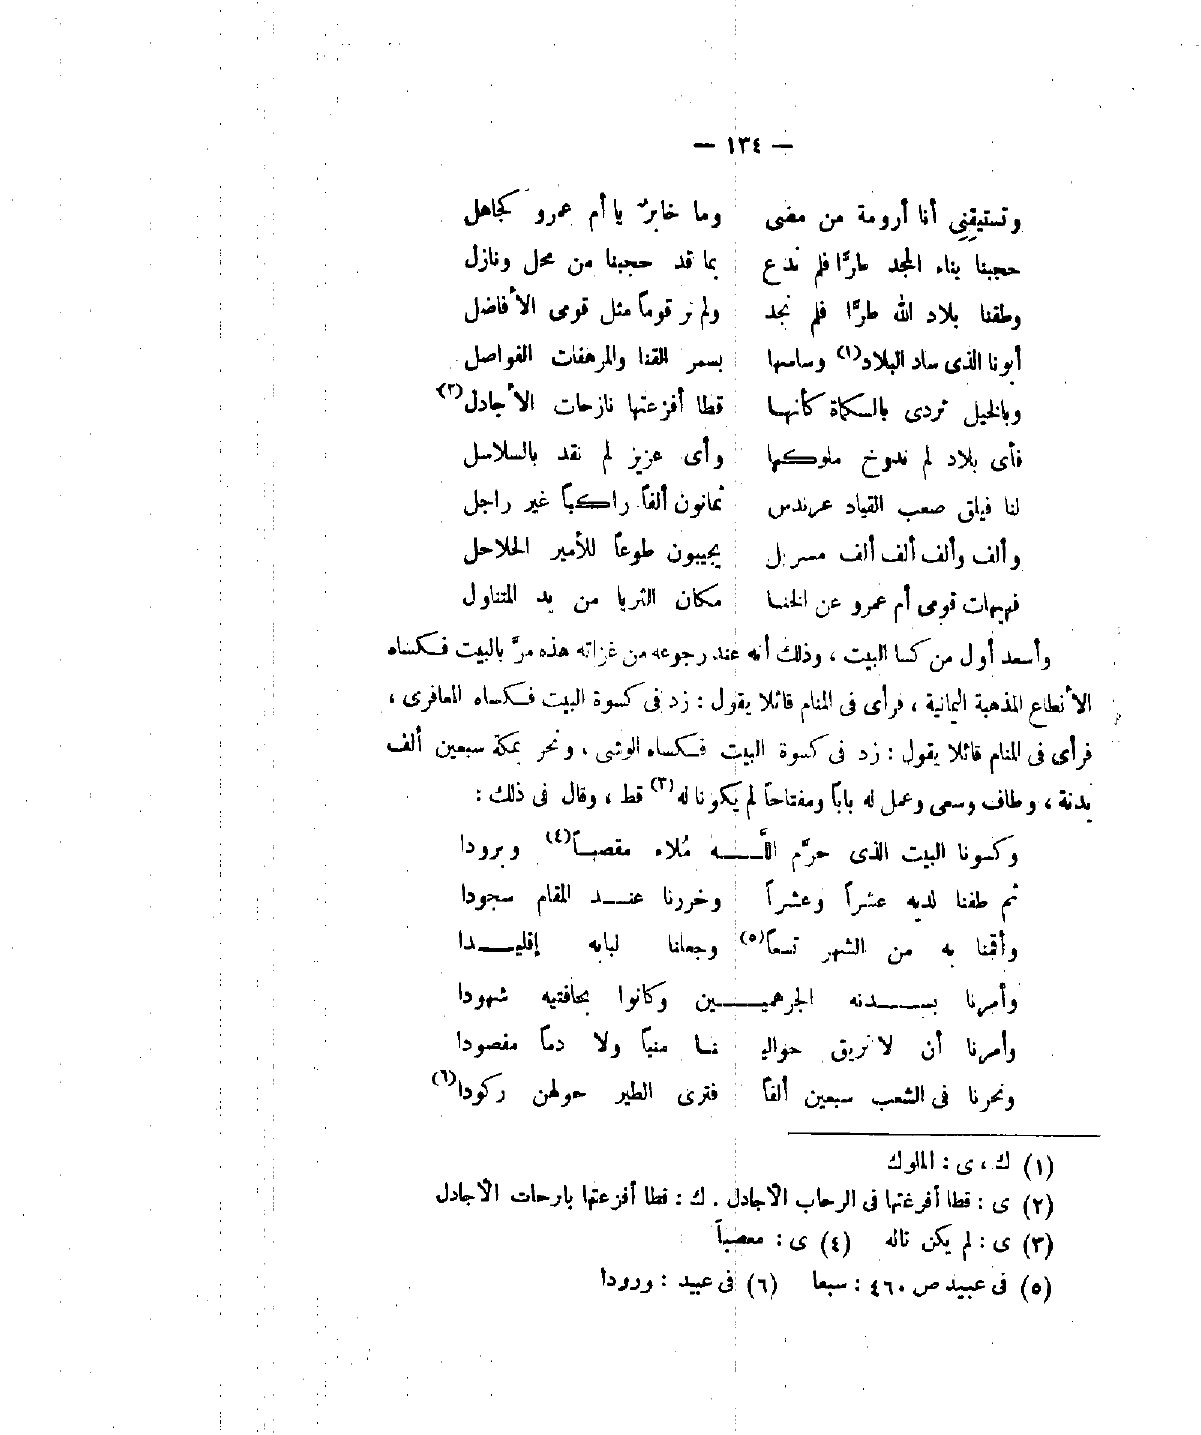 — ١٣٤ —
وتستيقِنِي أنا أرومة من مضى وما خابرٌ يا أم عمرو كجاهل
حجبنا بناء المجد طرًّا فلم ندع بما قد حجبنا من محل ونازل
وطفنا بلاد الله طرًّا فلم نجد ولم نر قوماً مثل قومى الأفاضل
أبونا الذى ساد البلاد(١) وساسها بسمر القنا والمرهفات الفواصل
وبالخيل تردى بالكماة كأنها قطا أفزعتها نازحات الأجادل(٢)
فأى بلاد لم ندوخ ملوكها وأى عزيز لم نقد بالسلاسل
لنا فيلق صعب القياد عرندس ثمانون ألفاً راكباً غير راجل
وألف وألف ألف ألف مسربل يجيبون طوعاً للأمير الحلاحل
فهيهات قومى أم عمرو عن الخنا مكان الثريا من يد المتناول
وأسعد أول من كسا البيت ، وذلك أنه عند رجوعه من غزاته هذه مرَّ بالبيت فكساه
الأنطاع المذهبة اليمانية ، فرأى فى المنام قائلا يقول : زد فى كسوة البيت فكساه المعافرى ،
فرأى فى المنام قائلا يقول : زد فى كسوة البيت فكساه الوشى ، ونحر بمكة سبعين ألف
بدنة ، وطاف وسعى وعمل له باباً ومفتاحاً لم يكونا له(٣) قط ، وقال فى ذلك :
وكسونا البيت الذى حرَّم اللَّه مُلاء مقصباً(٤) وبرودا
ثم طفنا لديه عشراً وعشراً وخررنا عند المقام سجودا
وأقمنا به من الشهر تسعاً(٥) وجعلنا لبابه إقليدا
وأمرنا بسدنه الجرهميين وكانوا بحافتيه شهودا
وأمرنا أن لا نريق حوالينا منياً ولا دماً مفصودا
ونحرنا فى الشعب سبعين ألفاً فترى الطير حولهن ركودا(٦)
(١) ك ، ى : الملوك
(٢) ى : قطا أفرغتها فى الرحاب الأجادل . ك : قطا أفزعتها بارحات الأجادل
(٣) ى : لم يكن ناله (٤) ى : معصباً
(٥) فى عبيد ص ٤٦٠ : سبعا (٦) فى عبيد : ورودا